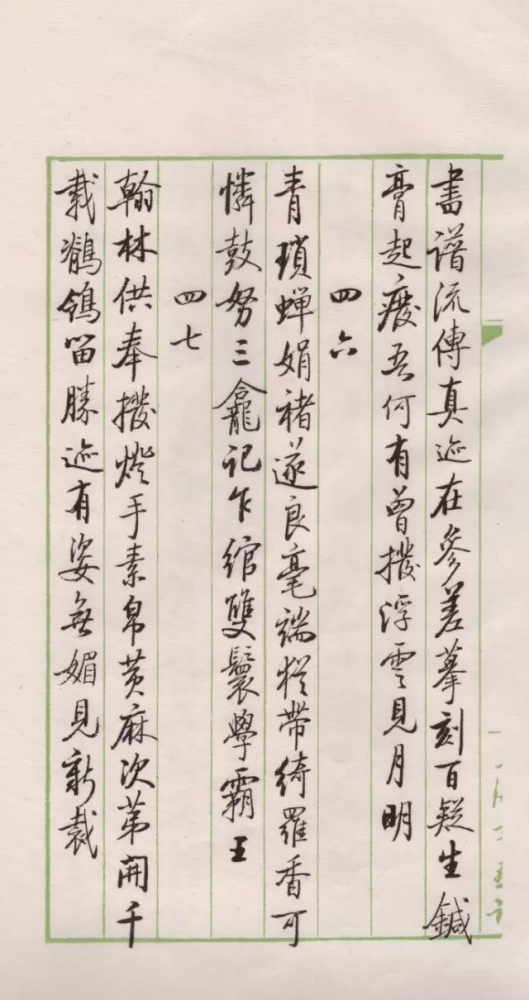 書譜流傳真迹在參差摹刻百疑生鍼
膏起廢吾何有曾撥浮雲見月明
四六
青瑣蟬娟褚遂良毫端猶帶綺羅香可
憐鼓努三龕記乍綰雙鬟學霸王
四七
翰林供奉撥燈手素帛黄麻次第開千
載鶺鴒留勝迹有姿無媚見新裁